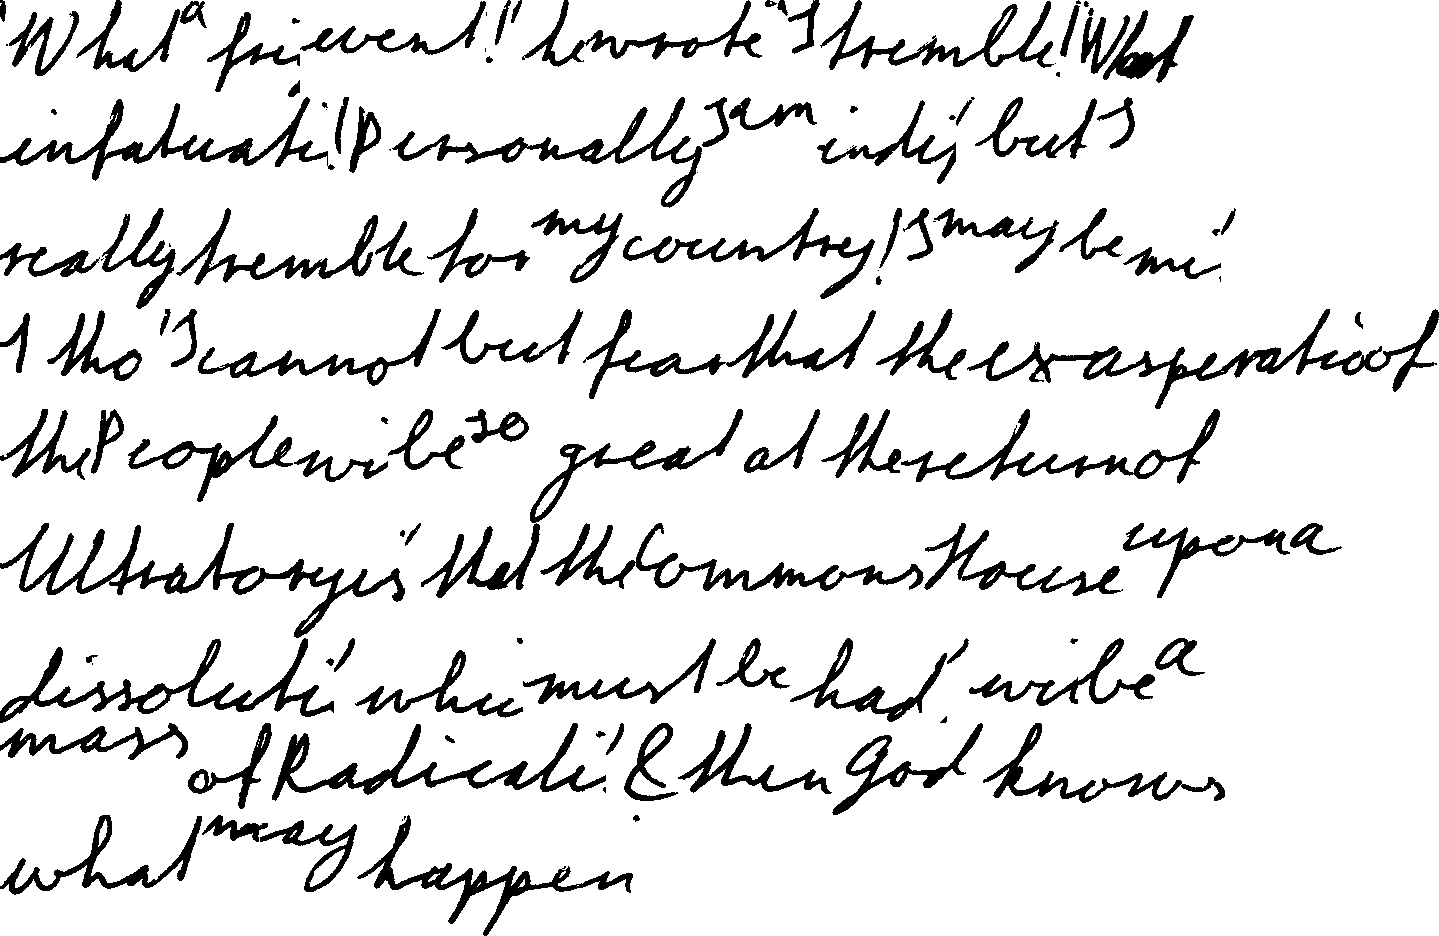 "What a fri, event!' he wrote "I tremble! What
infatuati'! Personally I am indi,' but I
really tremble for my country! I may be mi'
1 tho' I cannot but fear that the exasperatioof
the People wi be so great at the return of
Ultratoryis' that the Commons House upon a
dissoluti' whi must be had' wi be a
mass
of Radicali' & then God knows
what may happen